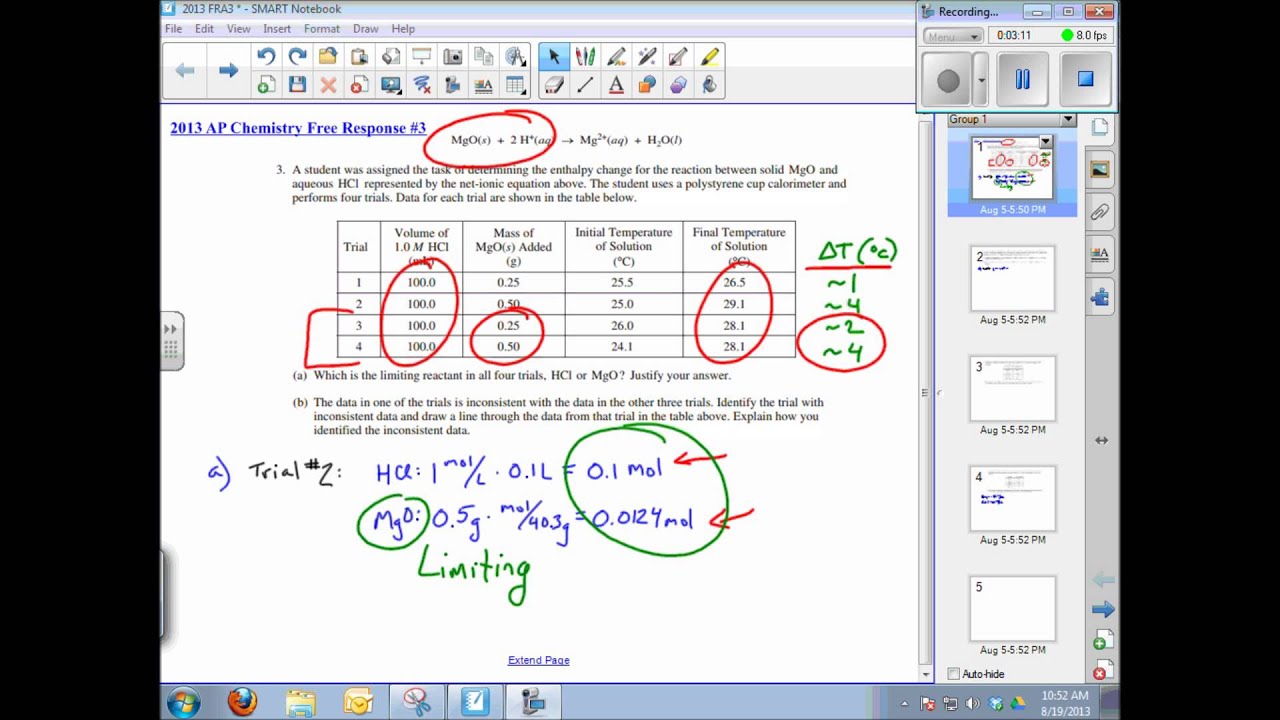 2013 FRA3 * - SMART Notebook
File Edit View Insert Format Draw Help
Recording...
Menu
0:03:11
8.0 fps
2013 AP Chemistry Free Response #3
MgO(s) + 2 H⁺(aq) → Mg²⁺(aq) + H₂O(l)
3. A student was assigned the task of determining the enthalpy change for the reaction between solid MgO and
aqueous HCl represented by the net-ionic equation above. The student uses a polystyrene cup calorimeter and
performs four trials. Data for each trial are shown in the table below.
Trial
Volume of
1.0 M HCl
(mL)
Mass of
MgO(s) Added
(g)
Initial Temperature
of Solution
(°C)
Final Temperature
of Solution
(°C)
ΔT (°C)
1 100.0 0.25 25.5 26.5 ~1
2 100.0 0.50 25.0 29.1 ~4
3 100.0 0.25 26.0 28.1 ~2
4 100.0 0.50 24.1 28.1 ~4
(a) Which is the limiting reactant in all four trials, HCl or MgO? Justify your answer.
(b) The data in one of the trials is inconsistent with the data in the other three trials. Identify the trial with
inconsistent data and draw a line through the data from that trial in the table above. Explain how you
identified the inconsistent data.
a) Trial #2: HCl: 1 mol/L · 0.1L = 0.1 mol
MgO: 0.5g · mol/40.3g = 0.0124 mol
Limiting
Extend Page
Group 1
1
Aug 5-5:50 PM
2
Aug 5-5:52 PM
3
Aug 5-5:52 PM
4
Aug 5-5:52 PM
5
Aug 5-5:52 PM
Auto-hide
10:52 AM
8/19/2013